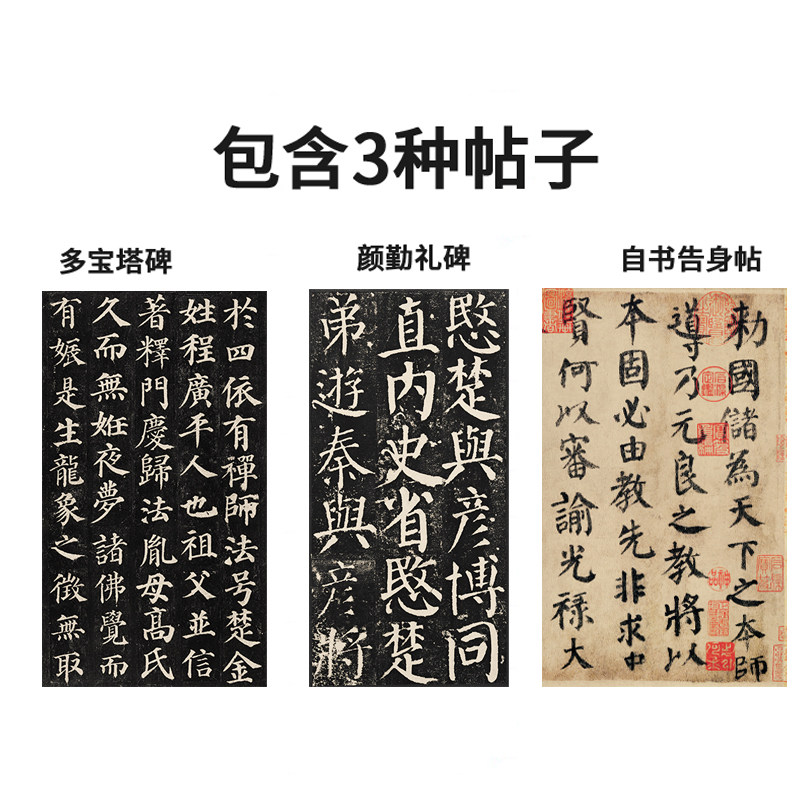 包含3种帖子
多宝塔碑
於四依有禪師法号楚金
姓程廣平人也祖父並信
著釋門慶歸法胤母高氏
久而無姙夜夢諸佛覺而
有娠是生龍象之徵無取
颜勤礼碑
愍楚與彦博同
直内史省愍楚
弟遊秦與彦將
自书告身帖
勅國儲為天下之本師
導乃元良之教將以
本固必由教先非求中
賢何以審諭光祿大